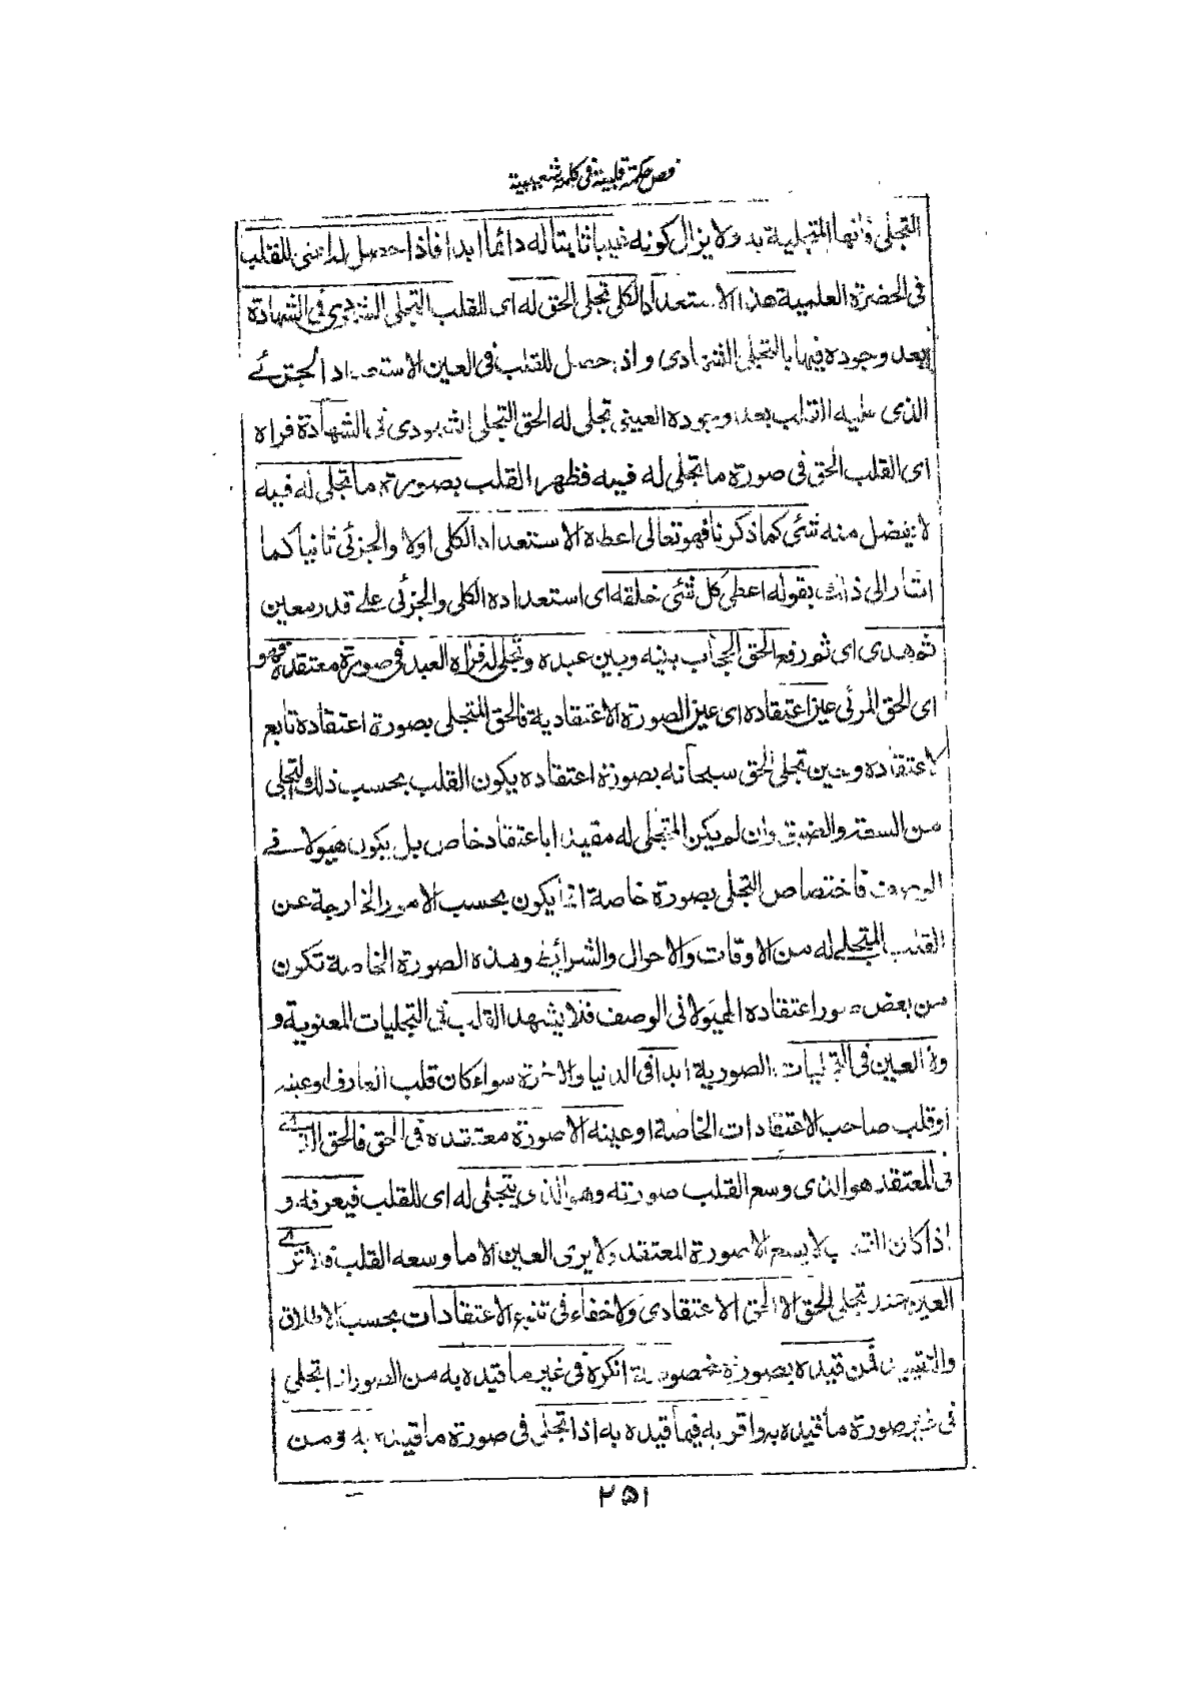 فص حكمة قلبية فى كلمة شعيبية
التجلى فانها المتجلية به ولا يزال كونه غيبا ثابتا له دائما ابدا فاذا حصل له اعنى للقلب
فى الحضرة العلمية هذا الاستعداد الكلى تجلى الحق له اى للقلب التجلى الشهودى فى الشهادة
بعد وجوده فيها بالتجلى الشهادى واذ حصل للقلب فى العين الاستعداد الجزئے
الذى عليه القلب بعد وجوده العينى تجلى له الحق التجلى الشهودى فى الشهادة فراه
اى القلب الحق فى صورة ما تجلى له فيه فظهر القلب بصورة ما تجلى له فيه
لا يفضل منه شئ كما ذكرنا فهو تعالى اعطاه الاستعداد الكلى اولا والجزئى ثانيا كما
اشار الى ذلك بقوله اعطى كل شئ خلقه اى استعداده الكلى والجزئى على قدر معين
ثم هدى اى ثم رفع الحق الحجاب بينه وبين عبده وتجلى له فراه العبد فى صورة معتقده فهو
اى الحق المرئى عين اعتقاده اى عين الصورة الاعتقادية فالحق المتجلى بصورة اعتقاده تابع
لاعتقاده وحين تجلى الحق سبحانه بصورة اعتقاده يكون القلب بحسب ذلك التجلى
من السعة والضيق وان لم يكن المتجلى له مقيدا باعتقاد خاص بل يكون هيولا فے
الوصف فاختصاص التجلى بصورة خاصة انما يكون بحسب الامور الخارجة عن
القلب المتجلے له من الاوقات والاحوال والشرائط وهذه الصورة الخاصة تكون
من بعض صور اعتقاده الهيولا فى الوصف فلا يشهد القلب فى التجليات المعنوية و
ولا العين فى التجليات الصورية ابدا فى الدنيا والاخرة سواء كان قلب العارف او عينه
او قلب صاحب الاعتقادات الخاصة او عينه الا صورة معتقده فى الحق فالحق الذے
فى المعتقد هو الذى وسع القلب صورته وهو الذى يتجلى له اى للقلب فيعرفه و
اذا كان القلب لا يسع الا صورة المعتقد ولا يرى العين الا ما وسعه القلب فلا ترے
العين عند تجلى الحق الا الحق الاعتقادى ولا خفاء فى تنوع الاعتقادات بحسب الاطلاق
والتقييد فمن قيده بصورة مخصوصة انكره فى غير ما قيده به من الصور اذا تجلى
فى غير صورة ما قيده به واقر به فيما قيده به اذا تجلى فى صورة ما قيده به ومن
۲۵۱